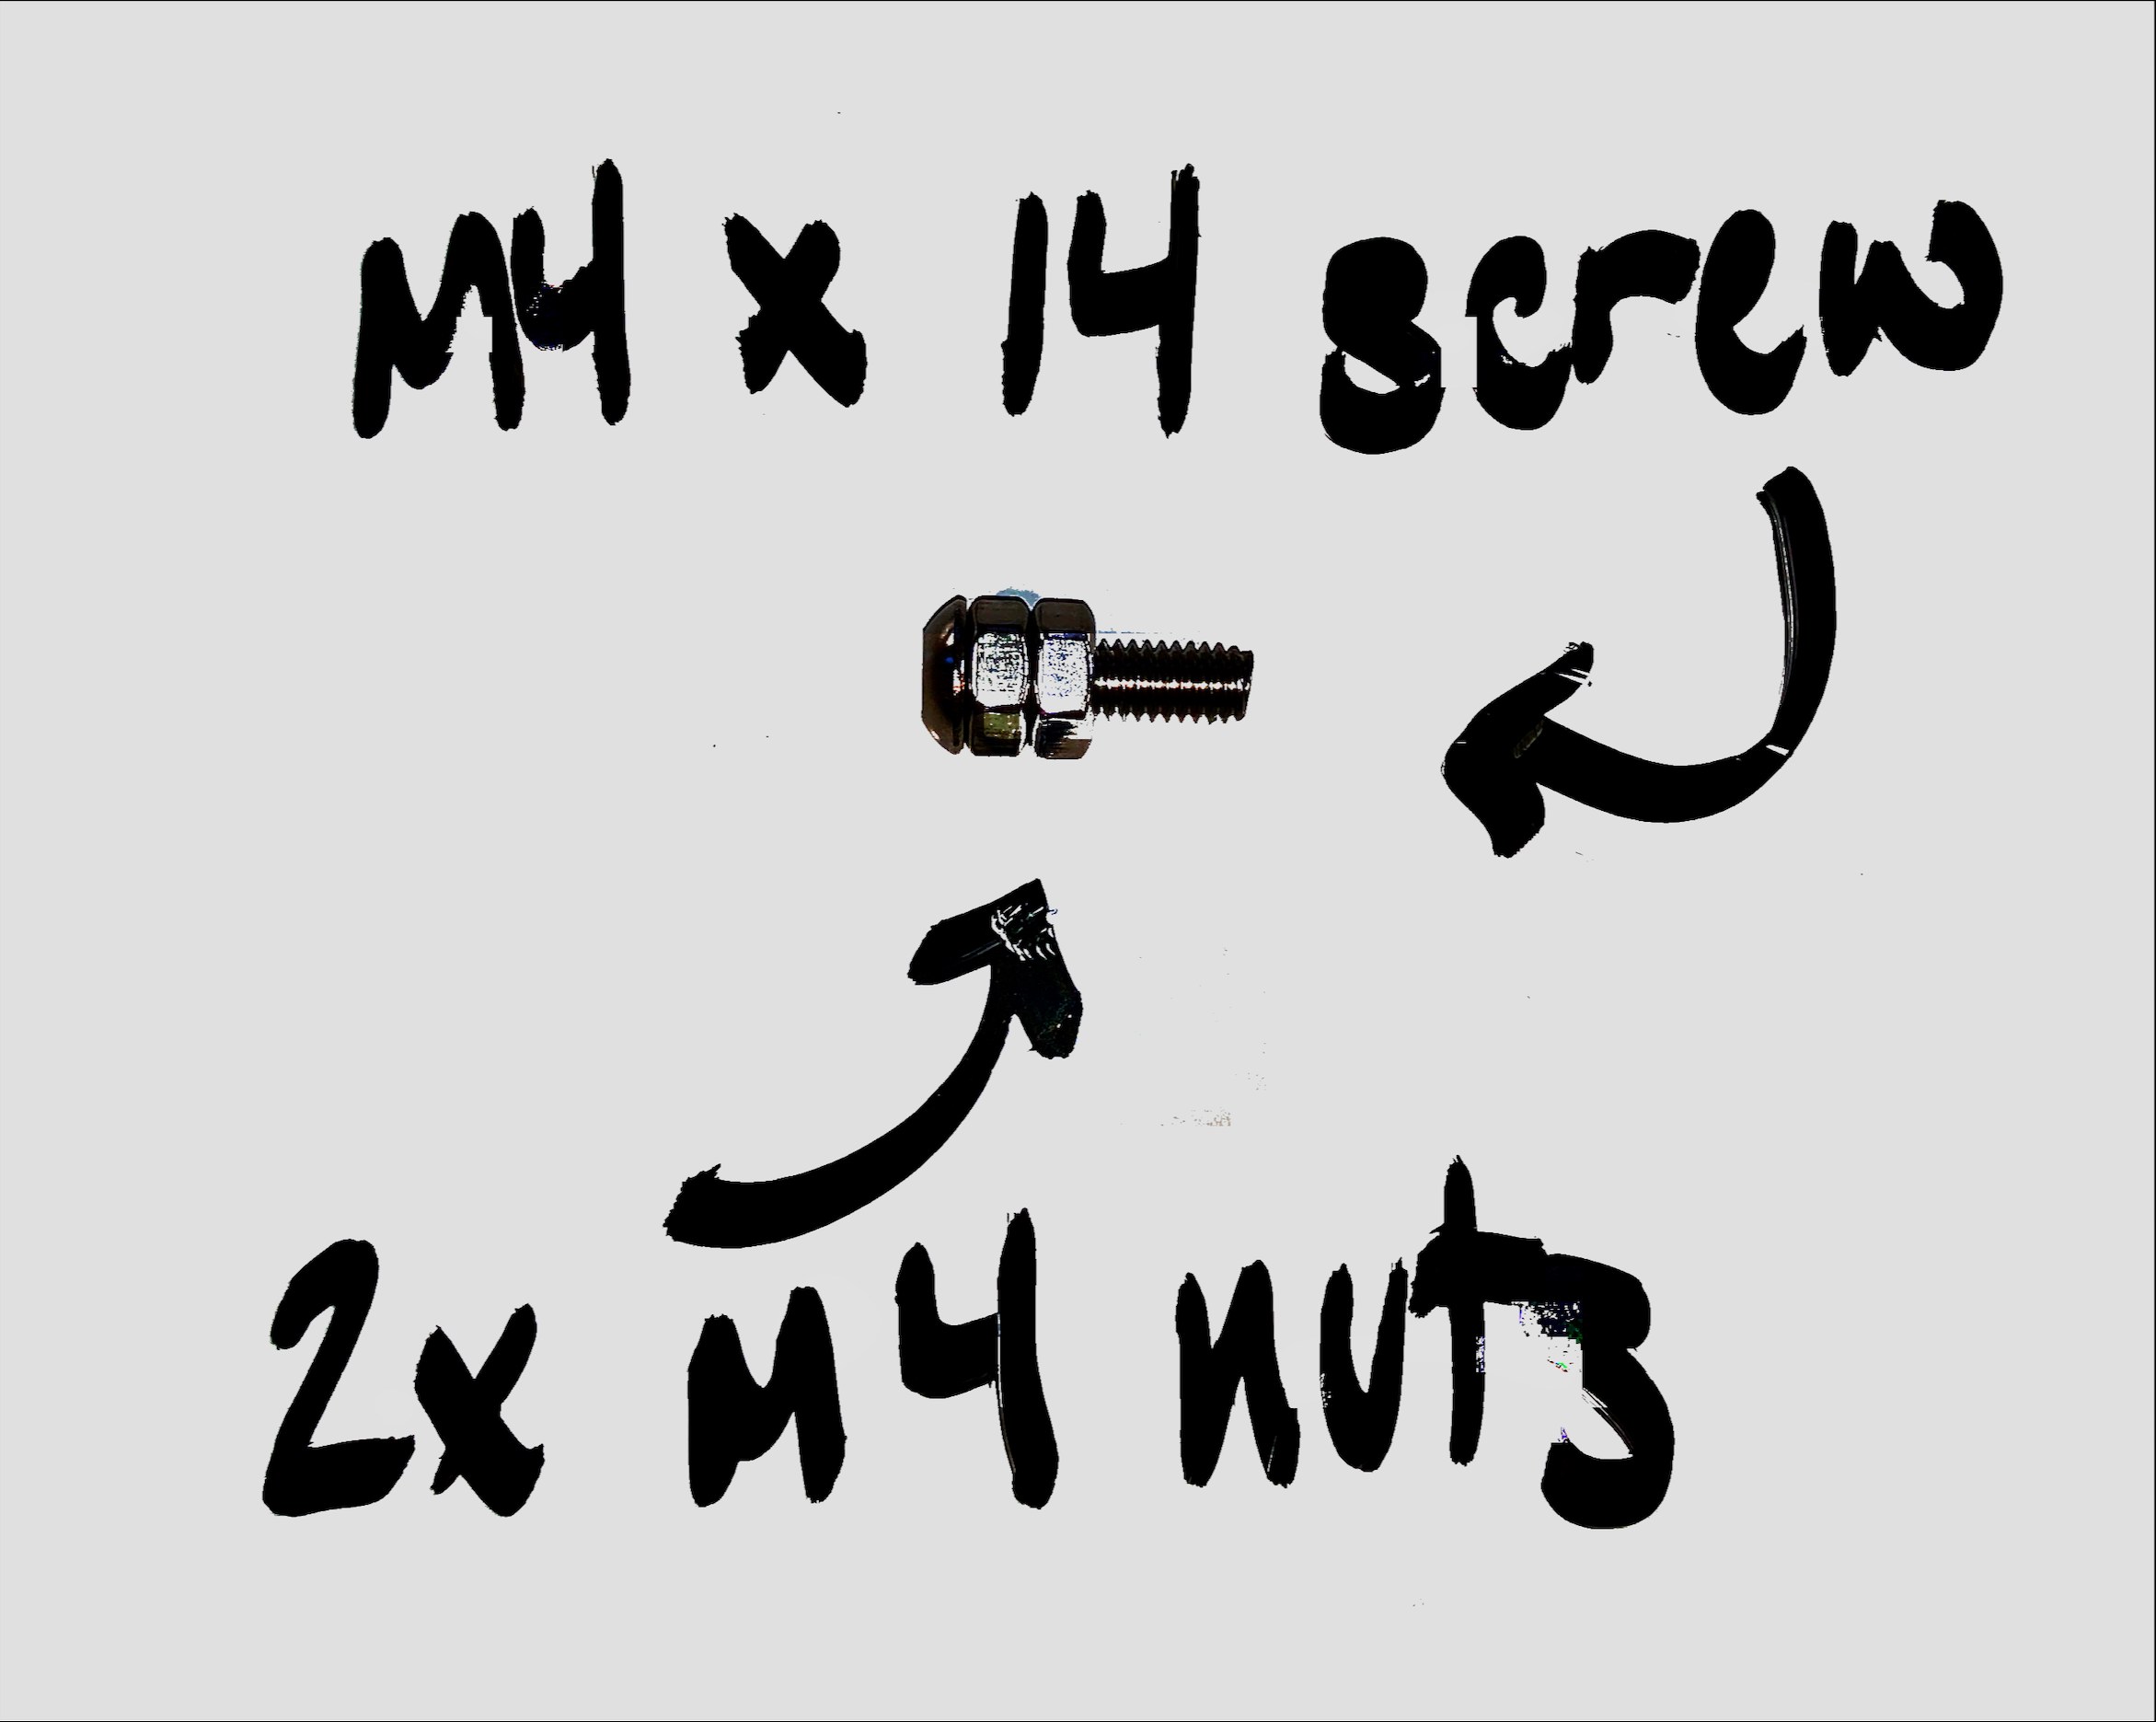 M4 x 14 screw
2x M4 nuts